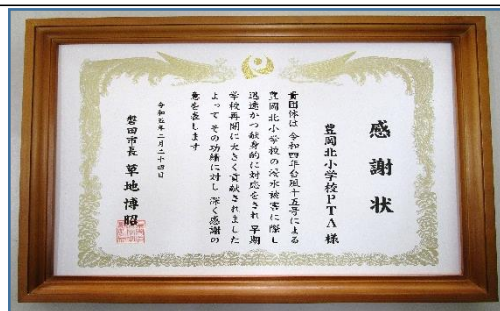 感謝状
豊岡北小学校PTA 様
貴団体は 令和四年台風十五号による
豊岡北小学校の浸水被害に際し
迅速かつ献身的に対応をされ 早期
学校再開に大きく貢献されました
よって その功績に対し 深く感謝の
意を表します
令和五年二月二十四日
磐田市長 草地博昭